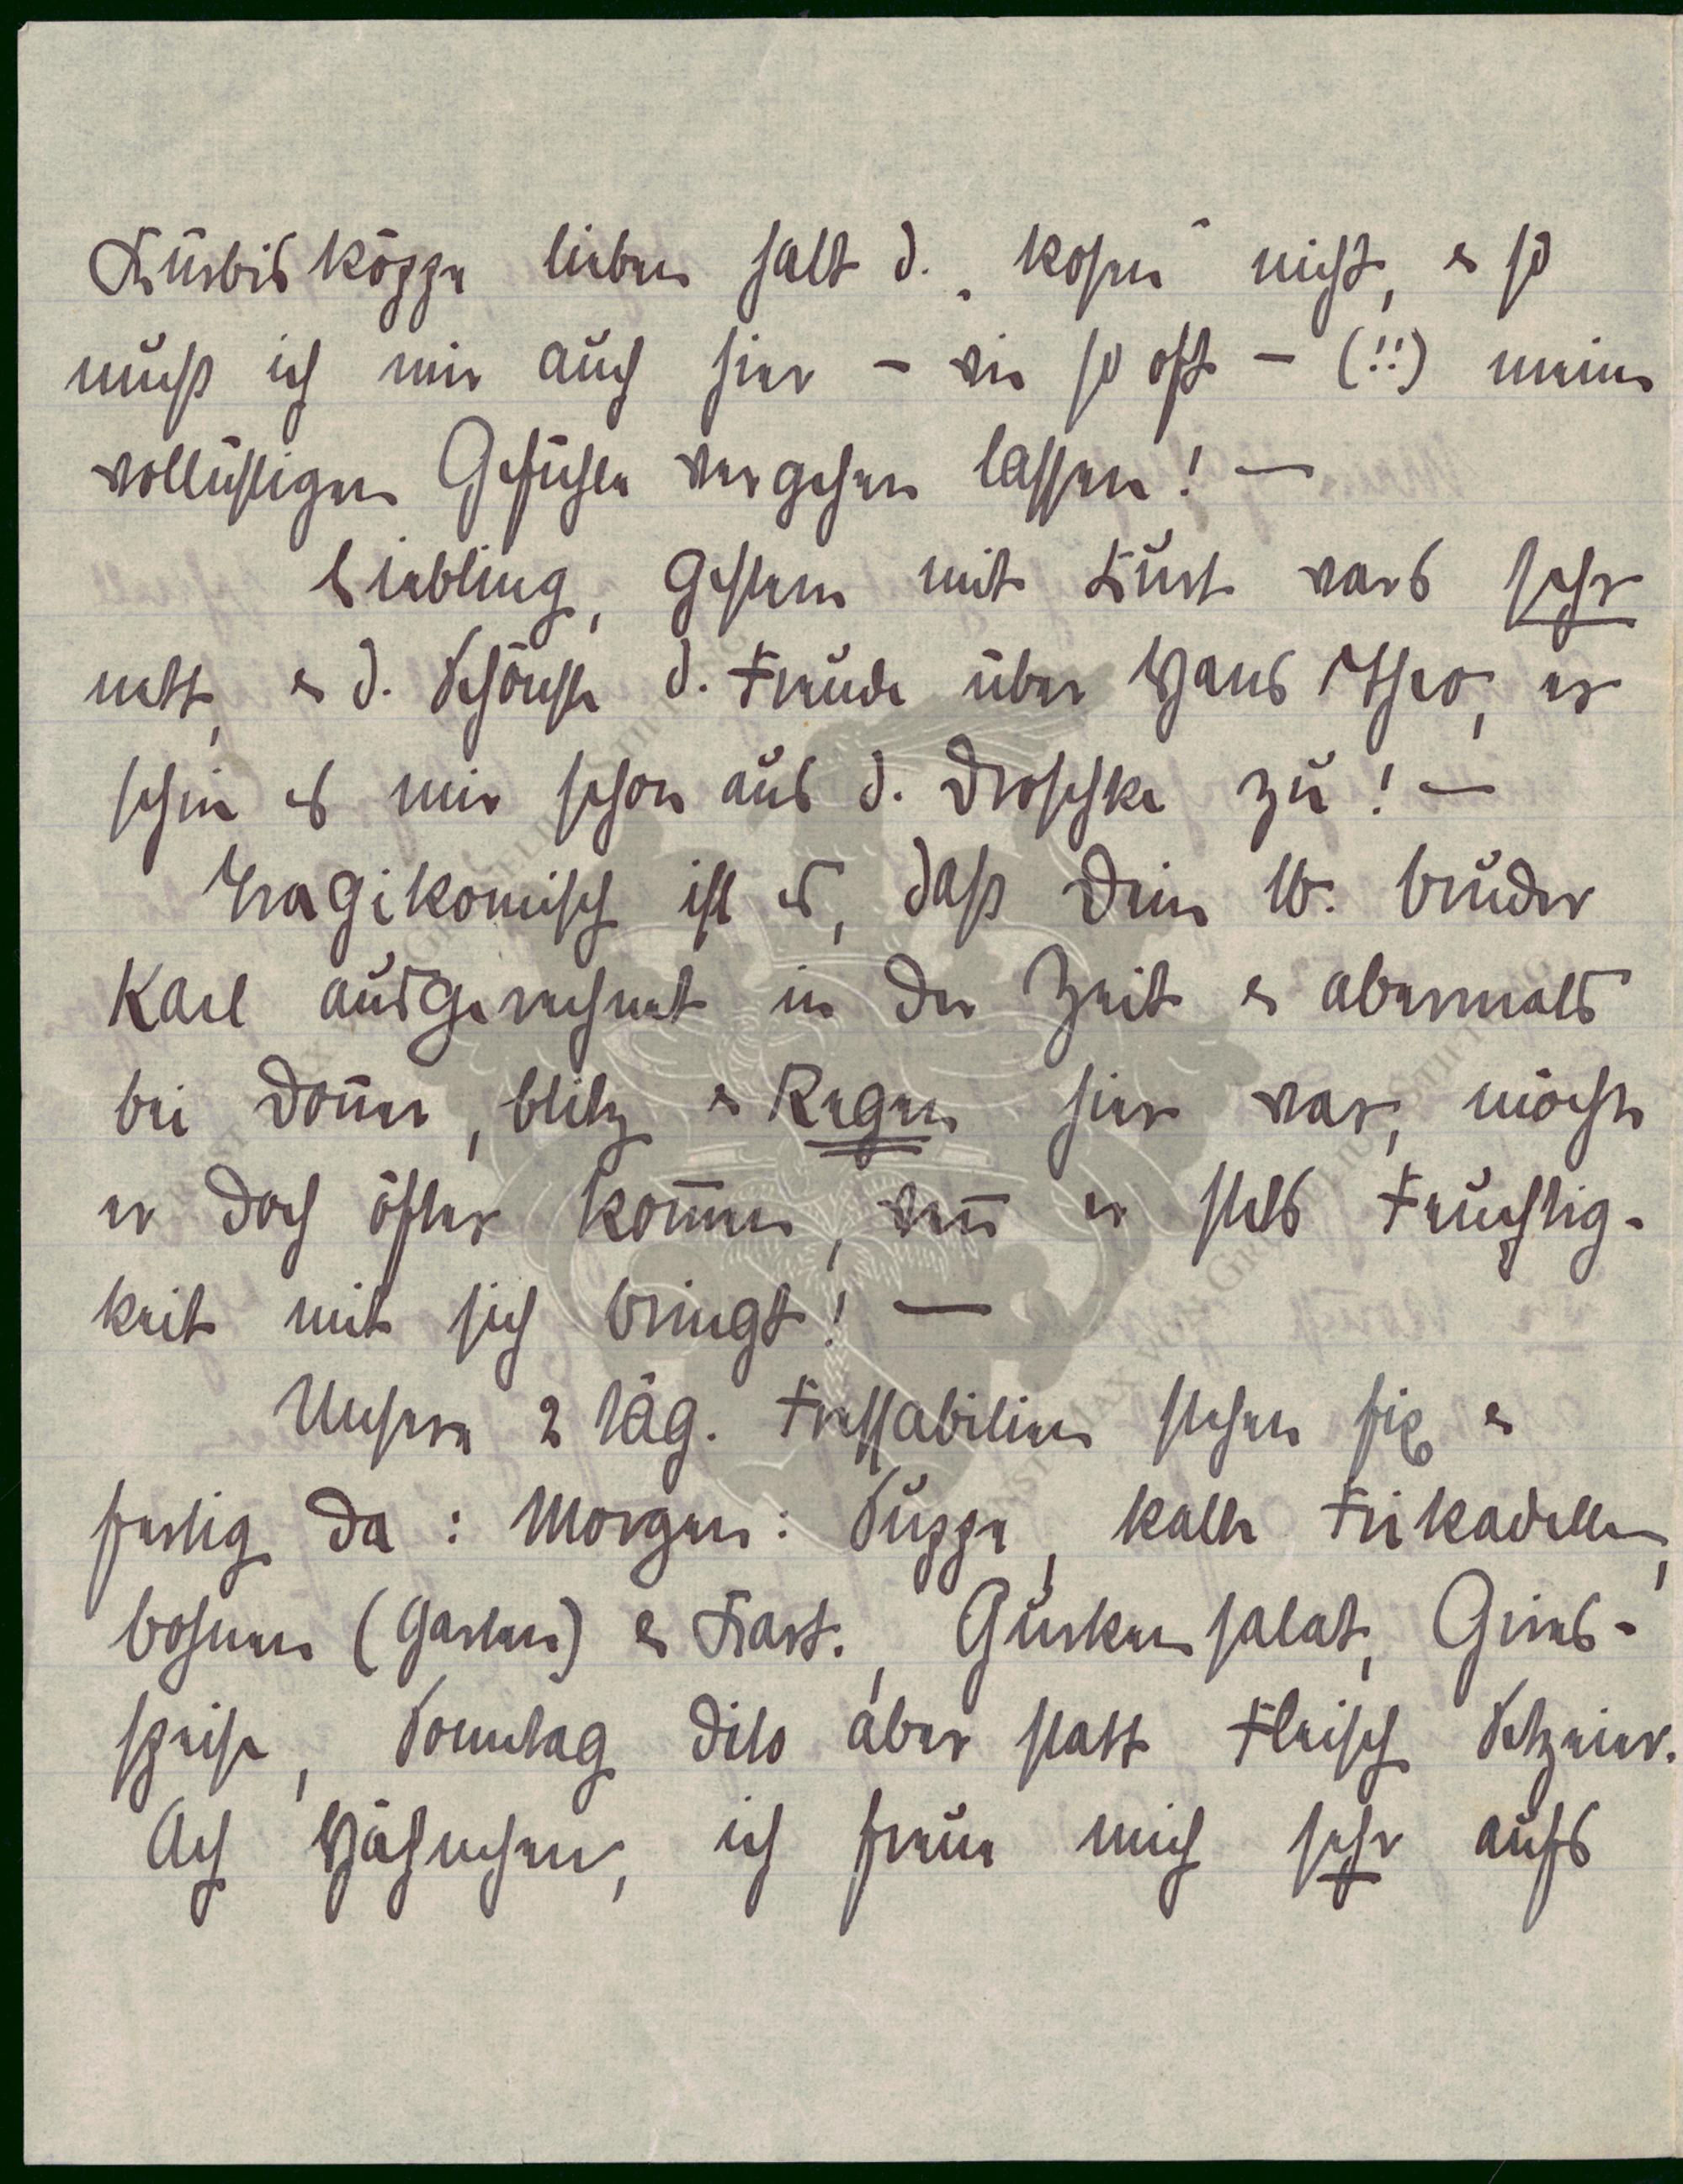 Kürbisköppe lieben halt d. „kosen" nicht, & so
muß ich mir auch hier – wie so oft – (!!) meine
wollüstigen Gefühle vergehen lassen! —
Liebling, gestern mit Kurt wars sehr
nett, & d. Schönste d. Freude über Hans Theo, er
schrie es mir schon aus d. Droschke zu! —
Tragikomisch ist es, daß Dein lb. Bruder
Karl ausgerechnet in der Zeit & abermals
bei Doñer, Blitz & Regen hier war, möchte
er doch öfter kom̄en, weñ er stets Feuchtig-
keit mit sich bringt! —
Unsere 2 täg. Fressabilien stehen fix &
fertig da: Morgen: Suppe, kalte Frikadellen,
Bohnen (Garten) & Kart., Gurkensalat, Gries-
speise, Sonntag dito aber statt Fleisch Setzeier.
Ach Hähnchen, ich freue mich sehr aufs